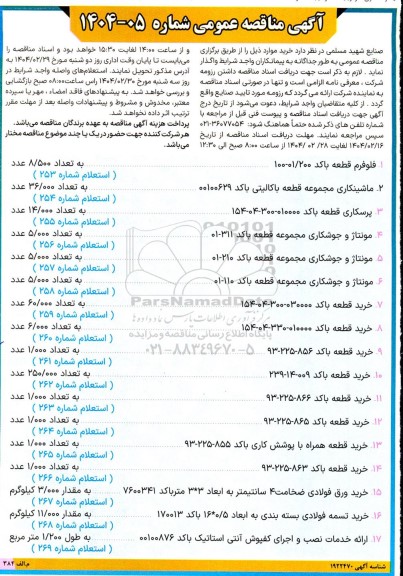 آگهی مناقصه عمومی شماره ۰۵-۱۴۰۴
صنایع شهید مسلمی در نظر دارد خرید موارد ذیل را از طریق برگزاری
مناقصه عمومی به طور جداگانه به پیمانکاران واجد شرایط واگذار
نماید . لازم به ذکر است جهت دریافت اسناد مناقصه داشتن رزومه
شرکت ، معرفی نامه الزامی است و تنها در صورتی اسناد مناقصه
به نماینده شرکت ارائه می گردد که رزومه مورد تایید صنایع واقع
گردد . از کلیه متقاضیان واجد شرایط، دعوت می‌شود از تاریخ درج
آگهی جهت دریافت اسناد مناقصه و پیوست فنی قبل از مراجعه با
شماره تلفن های ذکر شده حتما هماهنگ شود: ۳۶۰۷۷۰۵۴-۰۲۱
سپس مراجعه نمایند. مهلت دریافت اسناد مناقصه از تاریخ
۱۴۰۴/۰۲/۱۶ لغایت ۲۸/ ۰۲/ ۱۴۰۴ از ساعت ۸:۰۰ صبح الی ۱۲:۳۰
و از ساعت ۱۴:۰۰ لغایت ۱۵:۳۰ خواهد بود و اسناد مناقصه را
می‌بایست تا پایان وقت اداری روز دو شنبه مورخ ۱۴۰۴/۰۲/۲۹ به
آدرس مذکور تحویل نمایند. استعلام‌های واصله واجد شرایط در
روز سه شنبه مورخ ۱۴۰۴/۰۲/۳۰ راس ساعت۰۸:۰۰ صبح بازگشایی
و بررسی خواهد شد. به پیشنهادهای فاقد امضاء ، مهر یا سپرده
معتبر، مخدوش و مشروط و پیشنهادات واصله بعد از مهلت مقرر
ترتیب اثر داده نخواهد شد.
پرداخت هزینه آگهی مناقصه به عهده برندگان مناقصه می‌باشد.
هر شرکت کننده جهت حضور در یک یا چند موضوع مناقصه مختار
می‌باشد.
۱. فلوفرم قطعه باکد ۰۱/۲۰۰-۱۰۰ به تعداد ۸/۵۰۰ عدد
( استعلام شماره ۲۵۳ )
۲. ماشینکاری مجموعه قطعه باکالیتی باکد ۰۰۱۰۰۶۲۹ به تعداد ۳۶/۰۰۰ عدد
( استعلام شماره ۲۵۴ )
۳. پرسکاری قطعه باکد ۰۱۰۰۰۰-۳۰۰-۰۴-۱۵۴ به تعداد ۱۴/۰۰۰ عدد
( استعلام شماره ۲۵۵ )
۴. مونتاژ و جوشکاری مجموعه قطعه باکد ۳۱۱-۰۱ به تعداد ۵/۰۰۰ عدد
( استعلام شماره ۲۵۶ )
۵. مونتاژ و جوشکاری مجموعه قطعه باکد ۲۱۰-۰۱ به تعداد ۵/۰۰۰ عدد
( استعلام شماره ۲۵۷ )
۶. مونتاژ و جوشکاری مجموعه قطعه باکد ۱۱۰-۰۱ به تعداد ۵/۰۰۰ عدد
( استعلام شماره ۲۵۸ )
۷. خرید قطعه باکد ۰۳۰۰۰۰-۳۰۰-۰۴-۱۵۴ به تعداد ۶۰/۰۰۰ عدد
( استعلام شماره ۲۵۹ )
۸. خرید قطعه باکد ۰۱۰۰۰۰-۳۳۰-۰۴-۱۵۴ به تعداد ۶/۰۰۰ عدد
( استعلام شماره ۲۶۰ )
۹. خرید قطعه باکد ۸۵۶-۲۲۵-۹۳ به تعداد ۱/۰۰۰ عدد
( استعلام شماره ۲۶۱ )
۱۰. خرید قطعه باکد ۰۰۹-۱۴-۲۳۹ به تعداد ۲۵۰/۰۰۰ عدد
( استعلام شماره ۲۶۲ )
۱۱. خرید قطعه باکد ۸۶۶-۲۲۵-۹۳ به تعداد ۱/۰۰۰ عدد
( استعلام شماره ۲۶۳ )
۱۲. خرید قطعه باکد ۸۶۵-۲۲۵-۹۳ به تعداد ۱/۰۰۰ عدد
( استعلام شماره ۲۶۴ )
۱۳. خرید قطعه همراه با پوشش کاری باکد ۸۵۵-۲۲۵-۹۳ به تعداد ۱/۰۰۰ عدد
( استعلام شماره ۲۶۵ )
۱۴. خرید قطعه باکد ۸۶۳-۲۲۵-۹۳ به تعداد ۱/۰۰۰ عدد
( استعلام شماره ۲۶۶ )
۱۵. خرید ورق فولادی ضخامت۴ سانتیمتر به ابعاد ۳*۳ مترباکد ۷۶۰۰۳۴۱ به مقدار ۳/۰۰۰ کیلوگرم
( استعلام شماره ۲۶۷ )
۱۶. خرید تسمه فولادی بسته بندی به ابعاد ۰/۵*۱۶ باکد ۱۷۰۰۱۳ به مقدار ۱۱/۰۰۰ کیلوگرم
( استعلام شماره ۲۶۸ )
۱۷. ارائه خدمات نصب و اجرای کفپوش آنتی استاتیک باکد ۰۰۱۰۰۸۷۶ به طول ۱/۲۰۰ متر مربع
( استعلام شماره ۲۶۹ )
ParsNamadData
پایگاه اطلاع رسانی مناقصه و مزایده
۰۲۱-۸۸۳۴۹۶۷۰-۵
شناسه آگهی ۱۹۲۲۴۷۰
م الف ۳۸۴